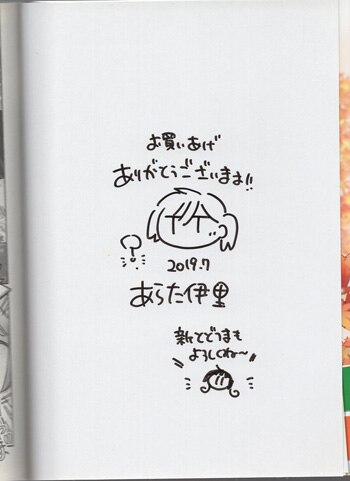 お買いあげ
ありがとうございます!!
?
2019.7
あらた伊里
新てどうまも
よろしくね〜